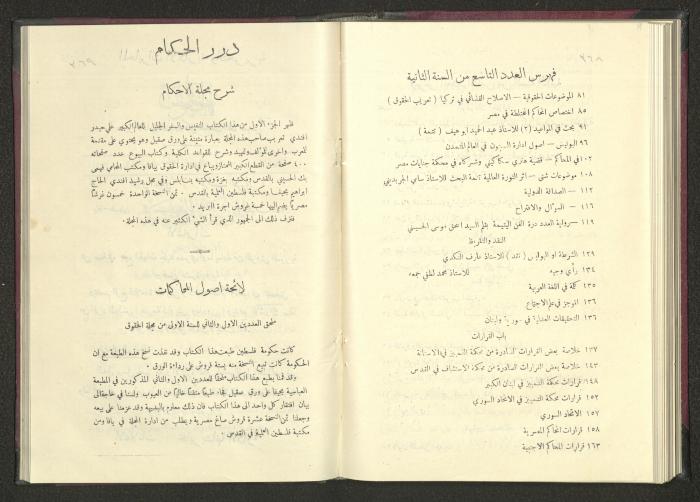 فهرس العدد التاسع من السنة الثانية
٨١ الموضوعات الحقوقية — الاصلاح القضائي في تركيا ( تعريب الحقوق )
٨٥ اختصاص المحاكم المختلطة في مصر
٩١ بحث في المواعيد (٢) للاستاذ عبد الحميد ابو هيف ( تتمة )
٩٦ البوليس — اصول ادارة السجون في العالم المتمدن
١٠٢ في المحاكم — قضية هنري سكاكيني وشركاه في محكمة جنايات مصر
١٠٨ موضوعات شتى — اثر الثورة العالمية تتمة البحث للاستاذ سامي الجريديني
١١٢ — الصداقة الدولية
١١٦ — السؤال والاقتراح
١١٩ — رواية العدد درة الفن اليتيمة بقلم السيد اسحق موسى الحسيني
النقد والتقريظ
١٢٩ الشرطة او البوليس ( نقد ) للاستاذ عارف النكدي
١٣٤ رأي وجيه للاستاذ محمد لطفي جمعه
١٣٥ كلمة في اللغة العربية
١٣٦ الموجز في علم الاجتماع
١٣٦ التحقيقات العدلية في سوريا ولبنان
باب القرارات
١٣٧ خلاصة بعض القرارات الصادرة من محكمة التمييز في الاستانة
١٤٣ خلاصة بعض القرارات الصادرة من محكمة الاستئناف في القدس
١٤٨ قرارات محكمة التمييز في لبنان الكبير
١٥٢ قرارات محكمة التمييز في الاتحاد السوري
١٥٧ الاتحاد السوري
١٥٨ قرارات المحاكم المصرية
١٦٣ قرارات المحاكم الاجنبية
درر الحكام
شرح مجلة الاحكام
ظهر الجزء الاول من هذا الكتاب النفيس والسفر الجليل للعالم الكبير علي حيدر
افندي تعريب صاحب هذه المجلة بعبارة متينة على ورق صقيل وهو يحتوي على مقدمة
للمعرب واخرى للمؤلف وتمهيد وشرح للقواعد الكلية وكتاب البيوع عدد صفحاته
٤٠٠ صفحة من القطع الكبير الممتاز ويباع في ادارة الحقوق بيافا ومكتب المحامي فهمي
بك الحسيني بالقدس ومكتبة بغزة ومكتبه بنابلس وفي محل رشيد افندي الحاج
ابراهيم بحيفا ومكتبة فلسطين العلمية بالقدس . ثمن النسخة الواحدة خمسون غرشاً
مصرياً يضم اليها خمسة غروش اجرة البريد .
فنزف ذلك الى الجمهور الذي قرأ الشيء الكثير عنه في هذه المجلة .
لائحة اصول المحاكمات
ملحق العددين الاول والثاني للسنة الاولى من مجلة الحقوق
كانت حكومة فلسطين طبعت هذا الكتاب وقد نفذت نسخ هذه الطبعة مع ان
الحكومة كانت تبيع النسخة منه بستة قروش على رداءة الورق .
وقد قمنا بطبع هذا الكتاب ملحقاً للعددين الاول والثاني المذكورين في المطبعة
العباسية بحيفا على ورق صقيل جاء طبعاً متقناً خالياً من العيوب ولسنا في حاجة الى
بيان افتقار كل واحد الى هذا الكتاب فان ذلك معلوم بالبديهة وقد عزمنا على بيعه
وجعلنا ثمن النسخة عشرة قروش صاغ مصرية ويطلب من ادارة المجلة في يافا ومن
مكتبة فلسطين العلمية في القدس .